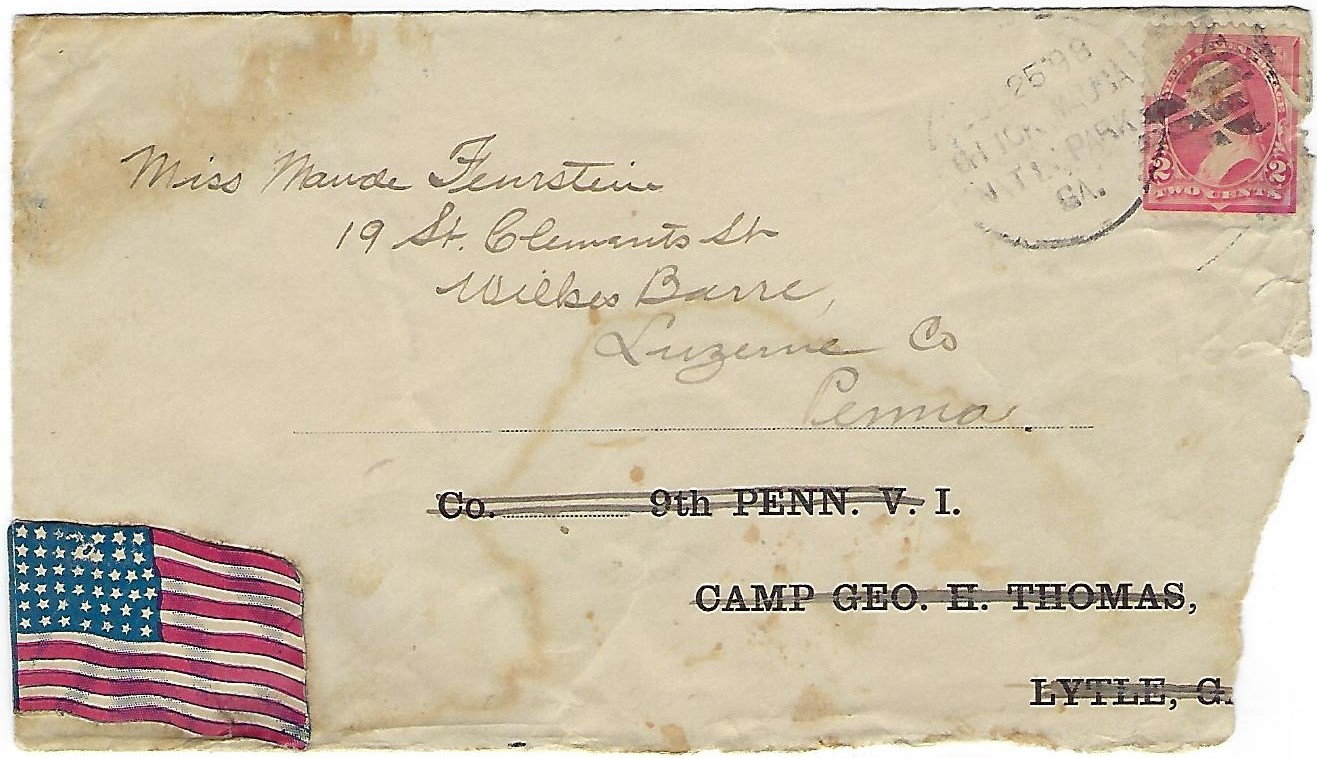 25 98
PARK
GA.
2 2
TWO CENTS
Miss Maude Feurstein
19 St. Clements St
Wilkes Barre,
Luzerne Co
Penna
Co. 9th PENN. V. I.
CAMP GEO. H. THOMAS,
LYTLE, G